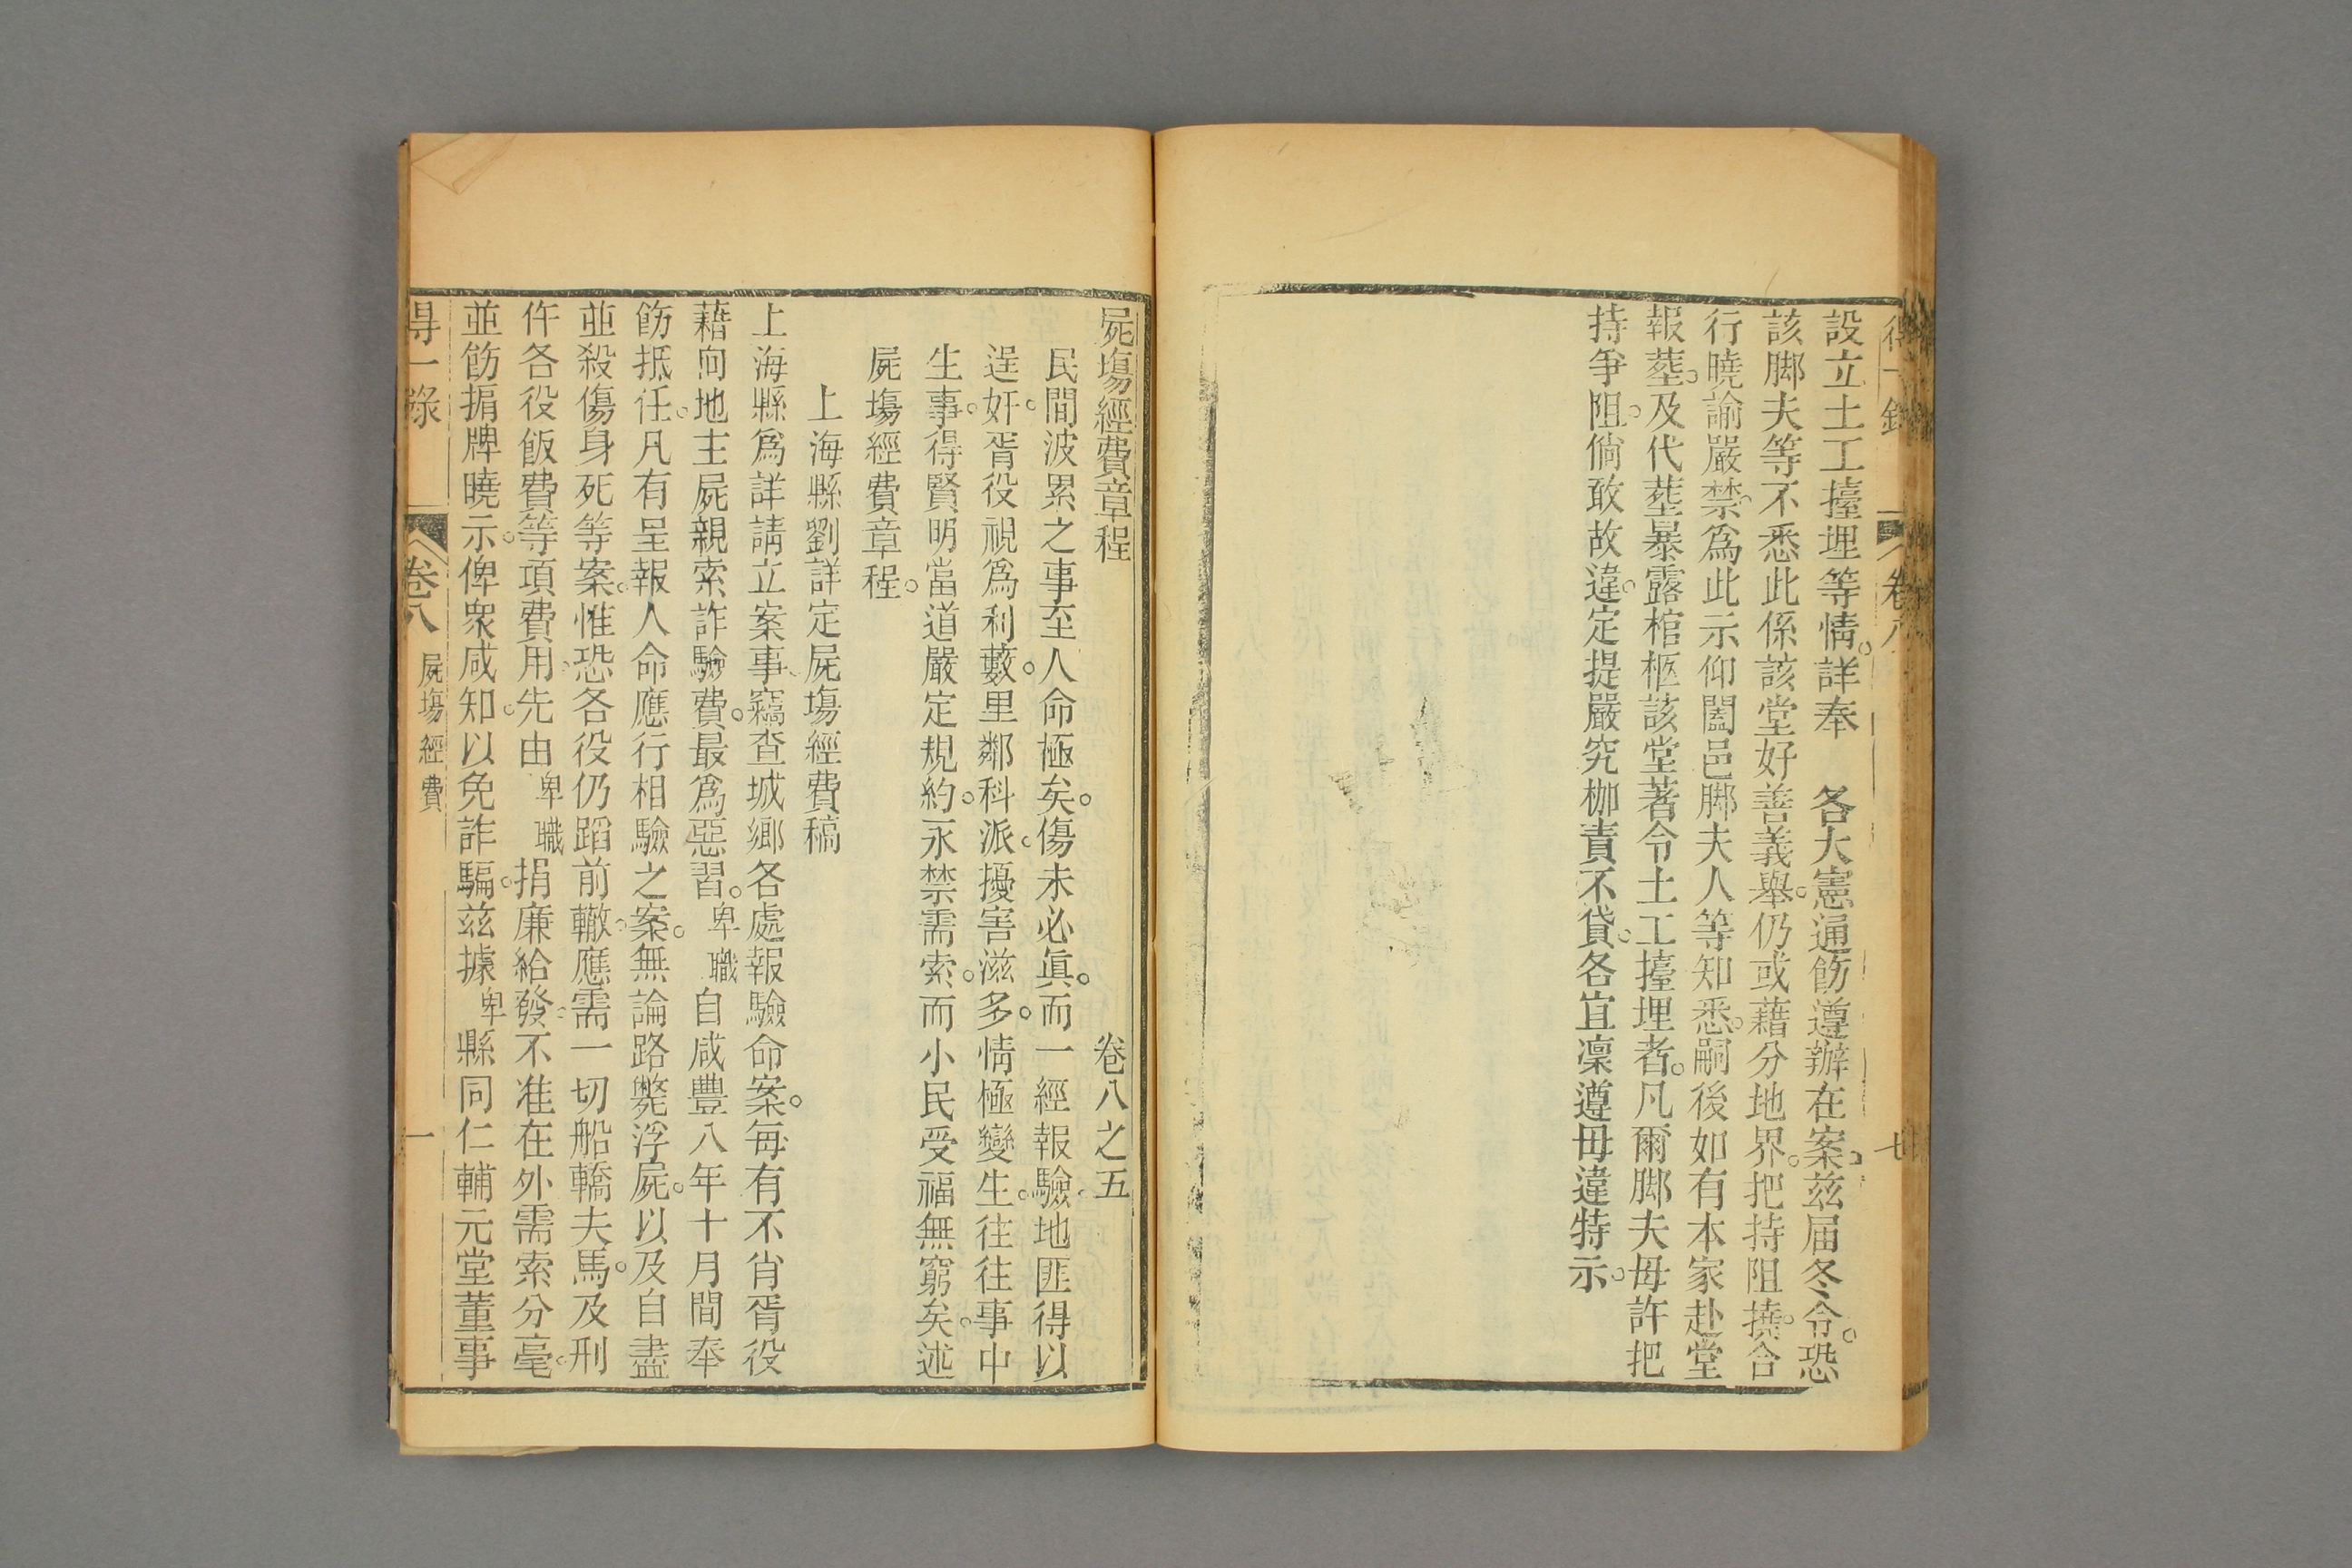 得一錄 卷八 七
設立土工擡埋等情。詳奉 各大憲通飭遵辦在案。茲届冬令。恐
該脚夫等不悉此係該堂好善義舉。仍或藉分地界。把持阻撓。合
行曉諭嚴禁。爲此示仰闔邑脚夫人等知悉。嗣後如有本家赴堂
報葬。及代葬暴露棺柩該堂著令土工擡埋者。凡爾脚夫毋許把
持爭阻。倘敢故違。定提嚴究枷責不貸。各宜凜遵毋違特示。
屍塲經費章程 卷八之五
民間波累之事至人命極矣。傷未必眞。而一經報驗。地匪得以
逞奸。胥役視爲利藪。里鄰科派。擾害滋多。情極變生。往往事中
生事。得賢明當道嚴定規約。永禁需索。而小民受福無窮矣。述
屍塲經費章程。
上海縣劉詳定屍塲經費稿
上海縣爲詳請立案事。竊查城鄉各處報驗命案。每有不肖胥役
藉向地主屍親索詐驗費。最爲惡習。卑職自咸豐八年十月間奉
飭抵任。凡有呈報人命應行相驗之案。無論路斃浮屍。以及自盡
並殺傷身死等案。惟恐各役仍蹈前轍。應需一切船轎夫馬。及刑
仵各役飯費等項費用。先由卑職捐廉給發。不准在外需索分毫。
並飭揭牌曉示。俾衆咸知。以免詐騙。茲據卑縣同仁輔元堂董事
得一錄 卷八 屍塲經費 一